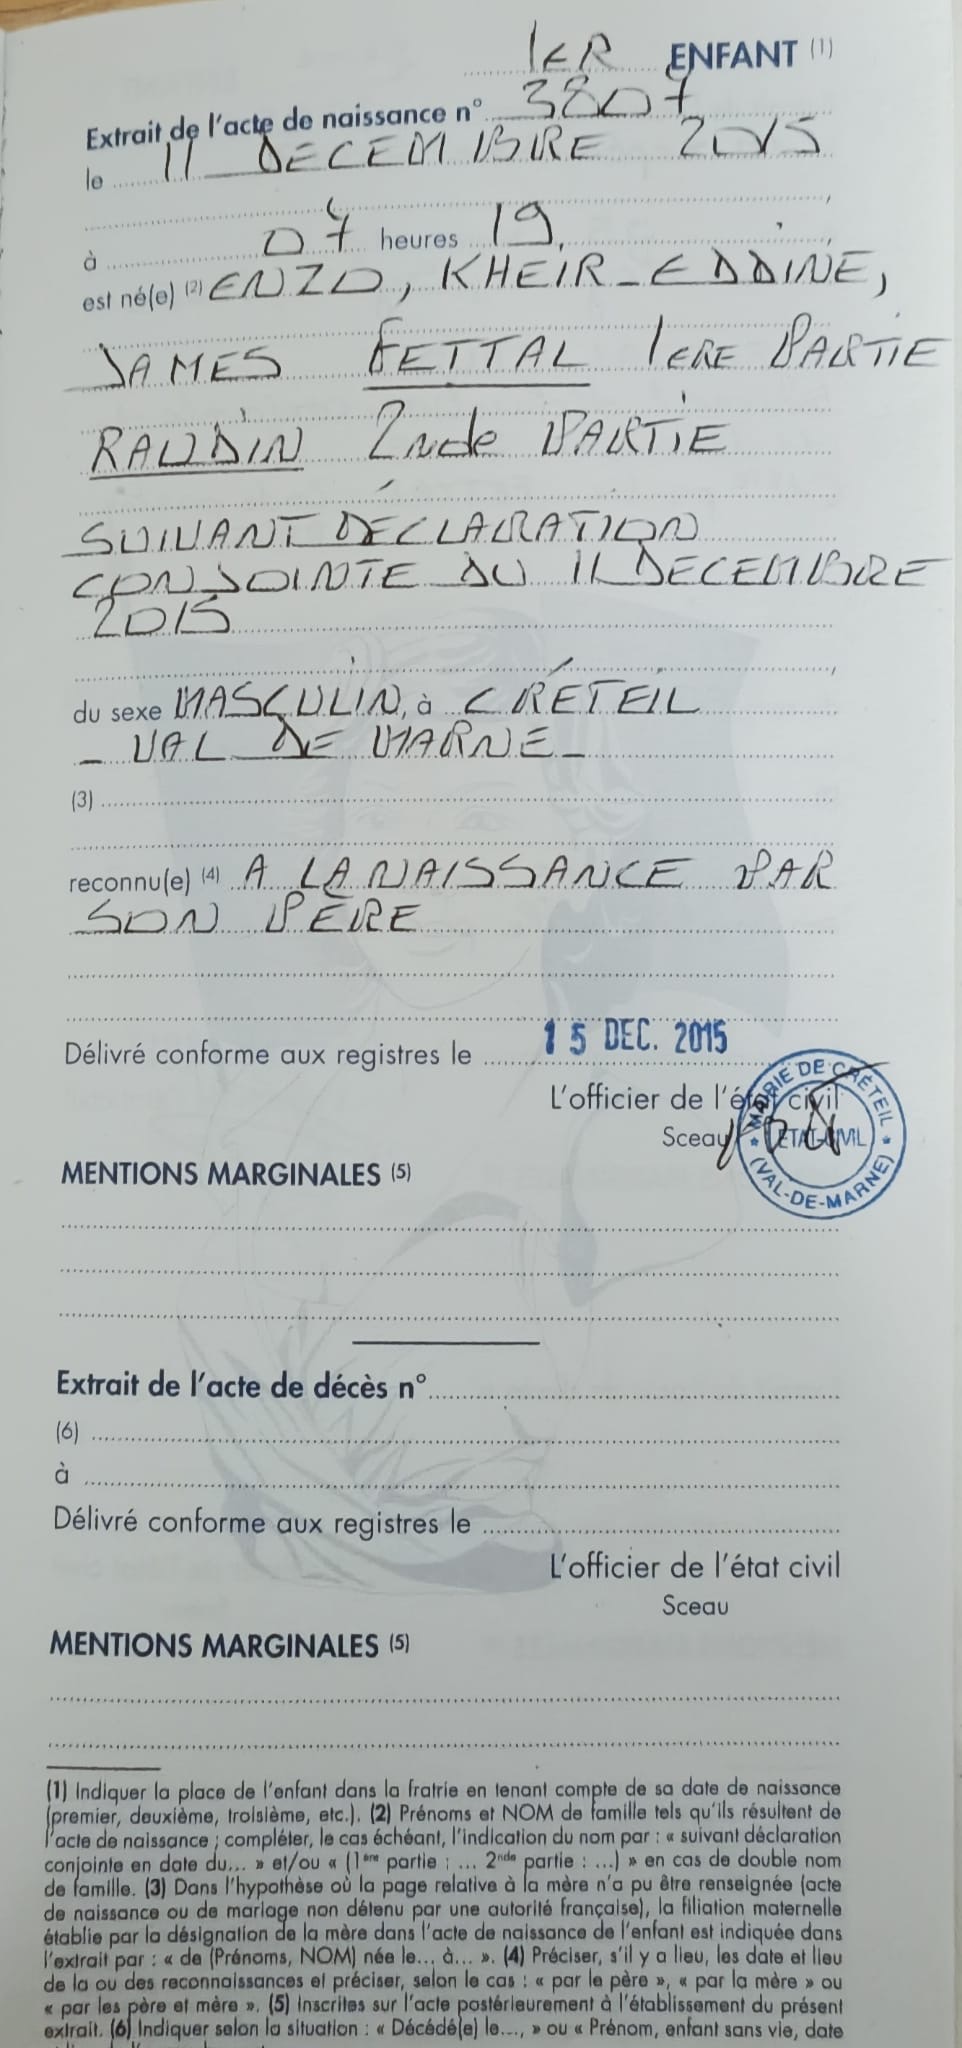 1ER ENFANT (1)
Extrait de l'acte de naissance n° 3807
le 11 DECEMBRE 2015
à 07 heures 19,
est né(e) (2) ENZO, KHEIR-EDDINE,
JAMES FETTAL 1ERE PARTIE
RAUDIN 2nde PARTIE
SUIVANT DÉCLARATION
CONJOINTE DU 11 DECEMBRE
2015
du sexe MASCULIN, à CRÉTEIL
- VAL DE MARNE -
(3)
reconnu(e) (4) A LA NAISSANCE PAR
SON PÈRE
Délivré conforme aux registres le 15 DEC. 2015
L'officier de l'état civil
Sceau
MAIRIE DE CRÉTEIL
ETAT-CIVIL
(VAL-DE-MARNE)
MENTIONS MARGINALES (5)
Extrait de l'acte de décès n°
(6)
à
Délivré conforme aux registres le
L'officier de l'état civil
Sceau
MENTIONS MARGINALES (5)
(1) Indiquer la place de l'enfant dans la fratrie en tenant compte de sa date de naissance
(premier, deuxième, troisième, etc.). (2) Prénoms et NOM de famille tels qu'ils résultent de
l'acte de naissance ; compléter, le cas échéant, l'indication du nom par : « suivant déclaration
conjointe en date du... » et/ou « (1ère partie : ... 2nde partie : ...) » en cas de double nom
de famille. (3) Dans l'hypothèse où la page relative à la mère n'a pu être renseignée (acte
de naissance ou de mariage non détenu par une autorité française), la filiation maternelle
établie par la désignation de la mère dans l'acte de naissance de l'enfant est indiquée dans
l'extrait par : « de (Prénoms, NOM) née le... à... ». (4) Préciser, s'il y a lieu, les date et lieu
de la ou des reconnaissances et préciser, selon le cas : « par le père », « par la mère » ou
« par les père et mère ». (5) Inscrites sur l'acte postérieurement à l'établissement du présent
extrait. (6) Indiquer selon la situation : « Décédé(e) le..., » ou « Prénom, enfant sans vie, date